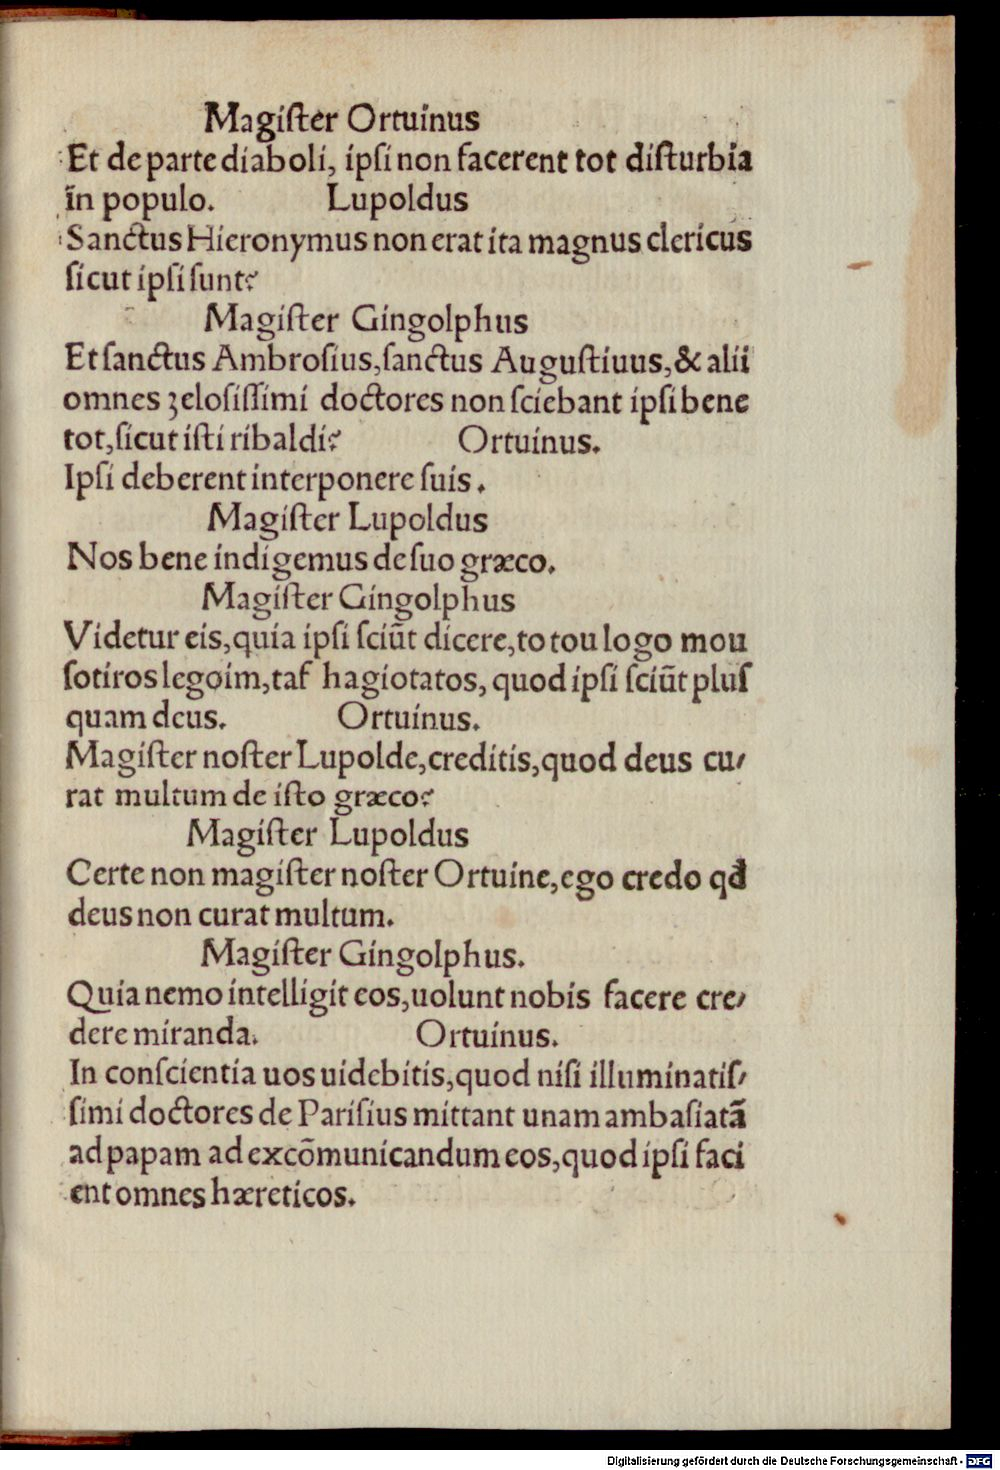 Magiſter Ortuinus
Et de parte diaboli, ipſi non facerent tot diſturbia
in populo. Lupoldus
Sanctus Hieronymus non erat ita magnus clericus
ſicut ipſi ſunt?
Magiſter Gingolphus
Et ſanctus Ambroſius, ſanctus Auguſtiuus, & alii
omnes ʒeloſiſſimi doctores non ſciebant ipſi bene
tot, ſicut iſti ribaldi? Ortuinus.
Ipſi deberent interponere ſuis.
Magiſter Lupoldus
Nos bene indigemus de ſuo græco.
Magiſter Gingolphus
Videtur eis, quia ipſi ſciũt dicere, to tou logo mou
ſotiros legoim, taſ hagiotatos, quod ipſi ſciũt pluſ
quam deus. Ortuinus.
Magiſter noſter Lupolde, creditis, quod deus cu/
rat multum de iſto græco?
Magiſter Lupoldus
Certe non magiſter noſter Ortuine, ego credo qđ
deus non curat multum.
Magiſter Gingolphus.
Quia nemo intelligit eos, uolunt nobis facere cre/
dere miranda. Ortuinus.
In conſcientia uos uidebitis, quod niſi illuminatiſ/
ſimi doctores de Pariſius mittant unam ambaſiatã
ad papam ad excõmunicandum eos, quod ipſi faci
ent omnes hæreticos.
Digitalisierung gefördert durch die Deutsche Forschungsgemeinschaft - DFG